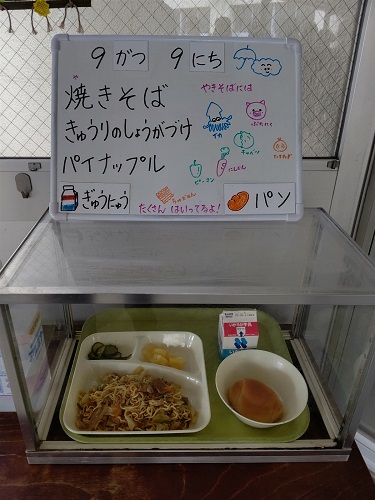 9がつ 9にち
や
焼きそば
きゅうりのしょうがづけ
パイナップル
ぎゅうにゅう
パン
やきそばには
イカ
ぶたにく
キャベツ
たまねぎ
ピーマン
にんじん
ちゅうかめん
たくさん はいってるよ!